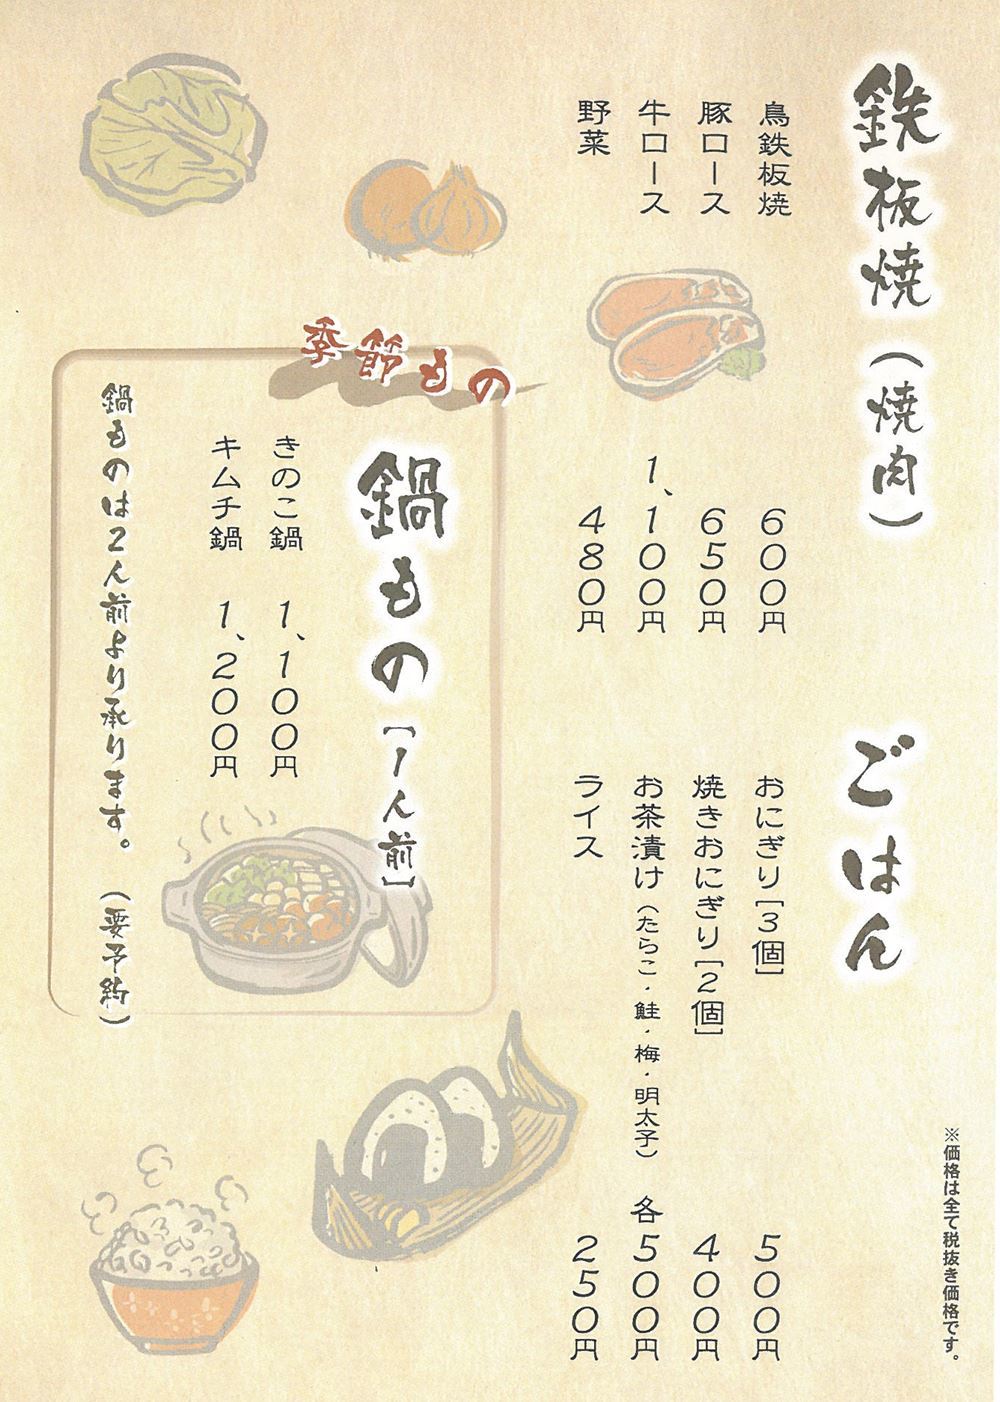 鉄板焼(焼肉)
鳥鉄板焼 600円
豚ロース 650円
牛ロース 1、100円
野菜 480円
ごはん
おにぎり[3個] 500円
焼きおにぎり[2個] 400円
お茶漬け(たらこ・鮭・梅・明太子) 各500円
ライス 250円
季節もの
鍋もの[1人前]
きのこ鍋 1、100円
キムチ鍋 1、200円
鍋ものは2人前より承ります。(要予約)
※価格は全て税抜き価格です。